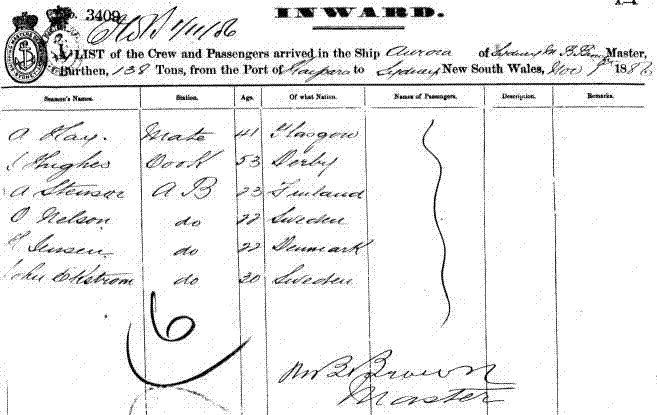 No. 3409
INWARD.
A LIST of the Crew and Passengers arrived in the Ship Aurora of Sydney M B Brown Master,
Burthen, 138 Tons, from the Port of Kaipara to Sydney New South Wales, Nov 1886
Seaman's Names. Station. Age. Of what Nation. Names of Passengers. Description. Remarks.
A Hay. Mate 41 Glasgow
J Hughes Cook 53 Derby
A Stensor A B 23 Finland
O Nelson do 22 Sweden
Jensen do 22 Denmark
John Ekstrom do 30 Sweden
6
M B Brown
Master